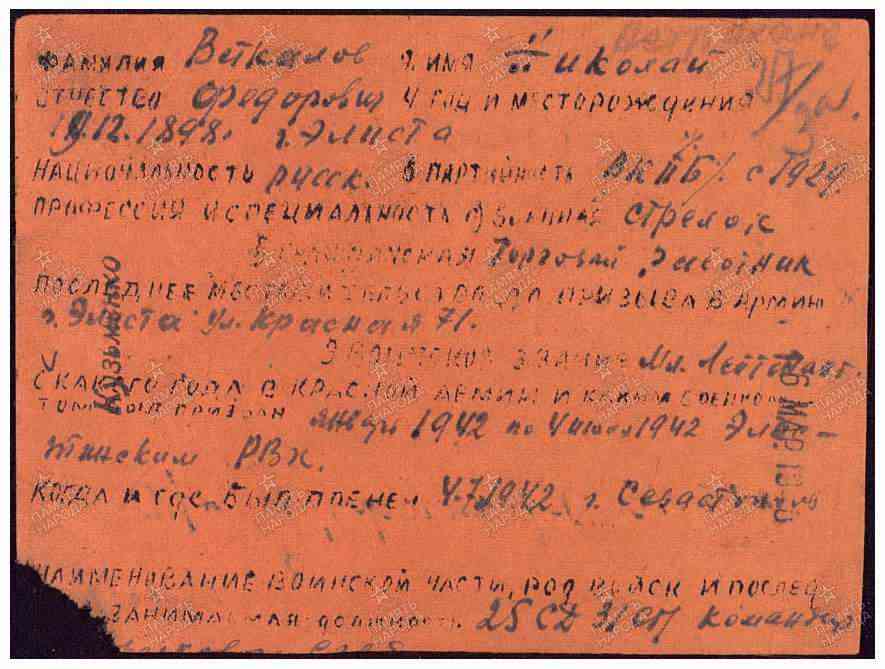 ФАМИЛИЯ Веткалов 2. ИМЯ Николай
ОТЧЕСТВО Федорович 4 ГОД И МЕСТОРОЖДЕНИЯ
19.12.1898. г. Элиста
НАЦИОНАЛЬНОСТЬ русск. 6 ПАРТИЙНОСТЬ ВКП/Б/. с 1929
ПРОФЕССИЯ И СПЕЦИАЛЬНОСТЬ а) ВОЕННАЯ стрелок
б ГРАЖДАНСКАЯ Торговый работник
ПОСЛЕДНЕЕ МЕСТОЖИТЕЛЬСТВО ДО ПРИЗЫВА В АРМИЮ
г. Элиста ул. Красная 71.
9 ВОИНСКОЕ ЗВАНИЕ Мл. Лейтенант.
С КАКОГО ГОДА В КРАСНОЙ АРМИИ И КАКИМ ВОЕНКОМ
ТОМ БЫЛ ПРИЗВАН январь 1942 по 4 июля 1942 Элис-
тинским РВК.
КОГДА И ГДЕ БЫЛ ПЛЕНЕН 4.7.1942 г. Севастополь
НАИМЕНОВАНИЕ ВОИНСКОЙ ЧАСТИ, РОД ВОЙСК И ПОСЛЕД
ЗАНИМАЕМАЯ ДОЛЖНОСТЬ 25 СД 31 СП командир
Кузьменко
МАР.